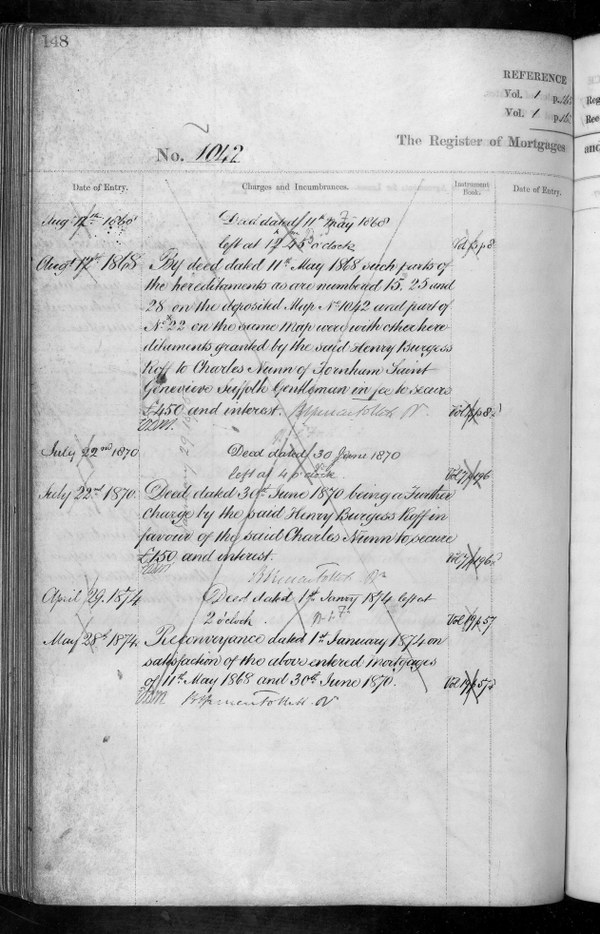 148
REFERENCE
Vol. 1 p.
Vol. 1 p.
No. 1042
The Register of Mortgages
Date of Entry.
Charges and Incumbrances.
Instrument Book.
Date of Entry.
Augt 12th 1868
Deed dated 11th May 1868
left at 12 45 o'clock
Augt 12th 1868
By deed dated 11th May 1868 such parts of
the hereditaments as are numbered 15, 25 and
28 on the deposited Map No 1042 and part of
No 22 on the same Map were with other here
ditaments granted by the said Henry Burgess
Roff to Charles Nunn of Fornham Saint
Genevieve Suffolk Gentleman in fee to secure
£450 and interest.
July 22nd 1870
Deed dated 30 June 1870
left at 4 o'clock
Vol 7 p 196
July 22nd 1870.
Deed dated 30th June 1870 being a Further
charge by the said Henry Burgess Roff in
favour of the said Charles Nunn to secure
£150 and interest.
Vol 7 p 196
April 29. 1874
Deed dated 1st Janry 1874 left at
2 o'clock.
Vol 19 p 57
May 28th 1874.
Reconveyance dated 1st January 1874 on
satisfaction of the above entered mortgages
of 11th May 1868 and 30th June 1870.
Vol 19 p 57